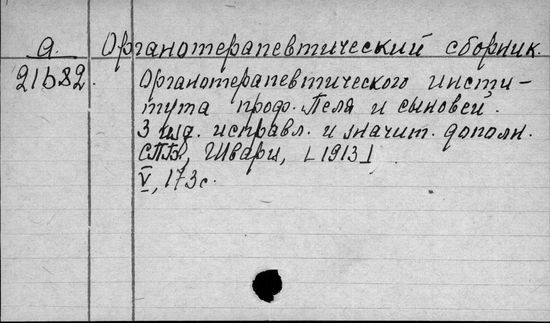 а. Органотерапевтический сборник
21b82. Органотерапевтического инсти-
тута проф. Пеля и сыновей.
3 изд. исправл. и значит. дополн.
СПБ, Шварц, [1913]
V, 173 с.